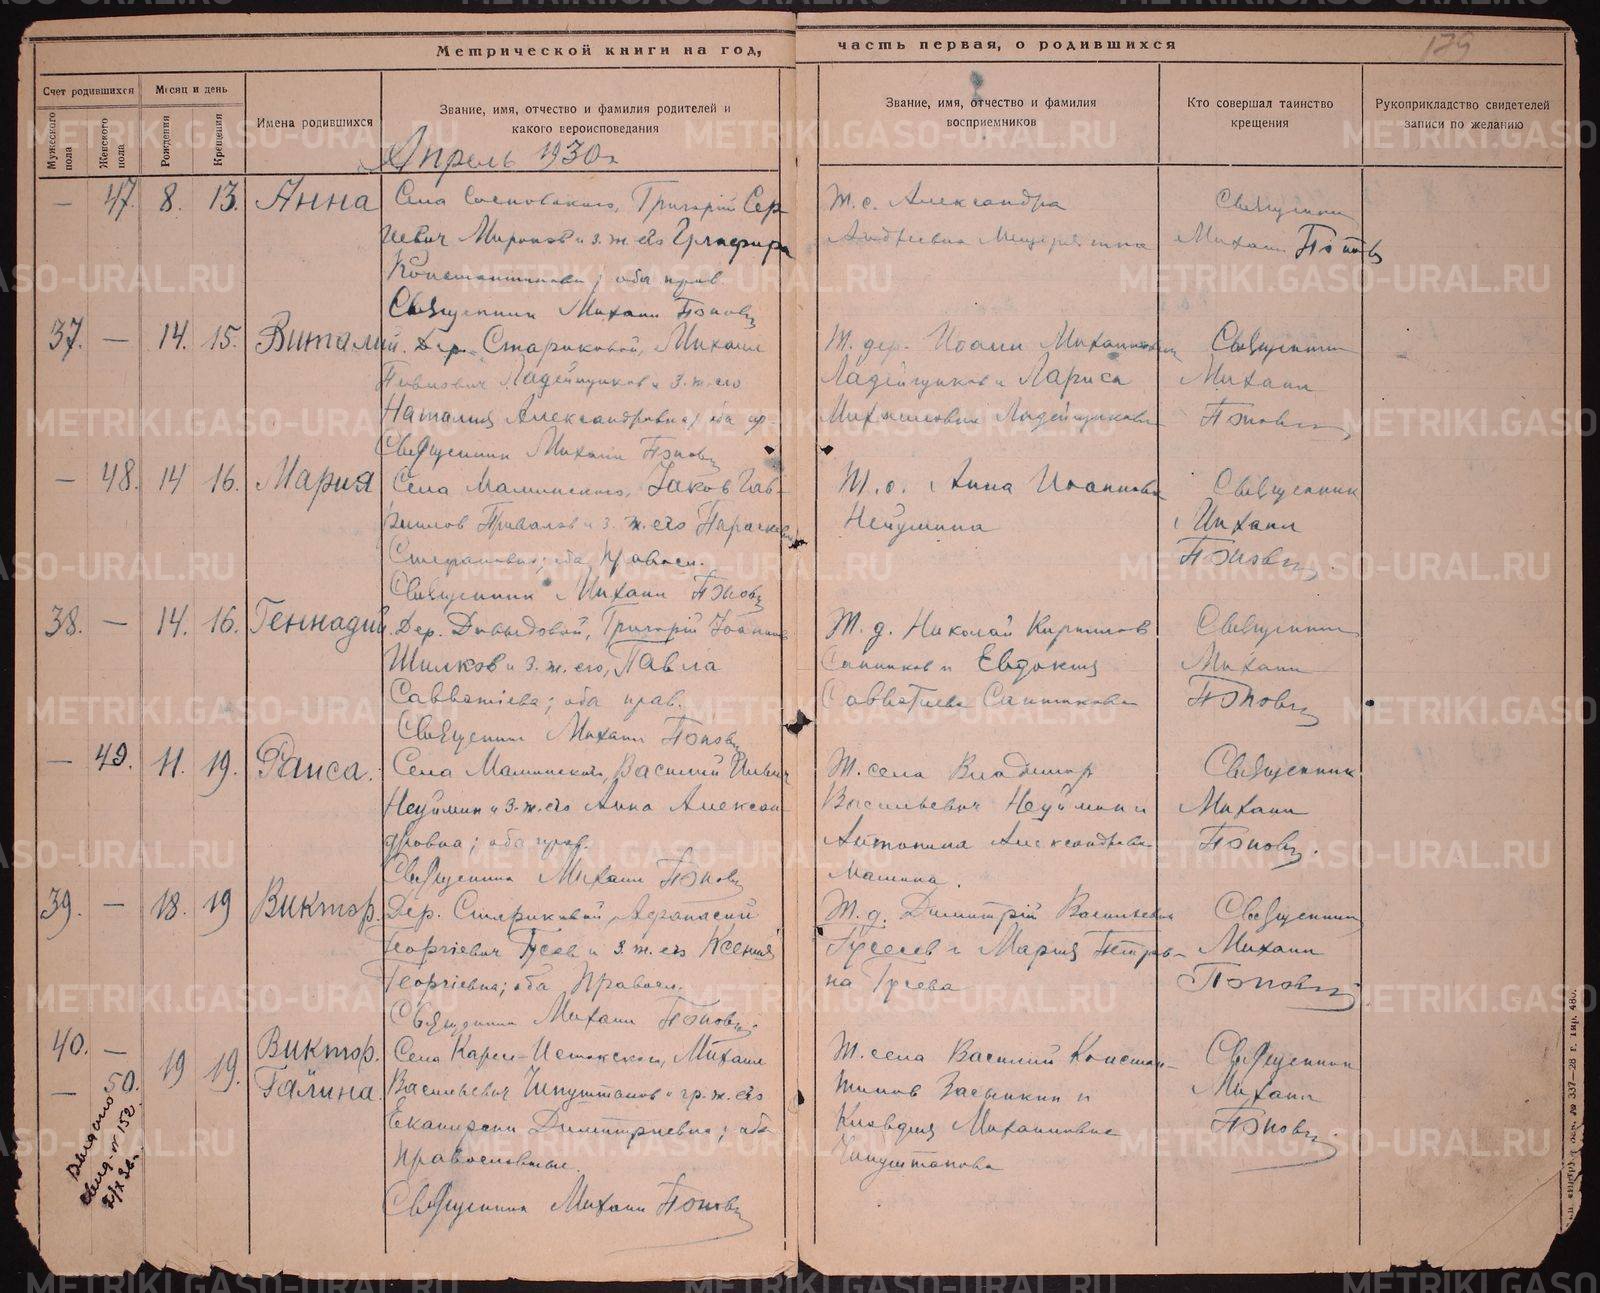 Метрической книги на год,
часть первая, о родившихся
179
Счет родившихся
Месяц и день
Мужеского пола
Женского пола
Рождения
Крещения
Имена родившихся
Звание, имя, отчество и фамилия родителей и
какого вероисповедания
Звание, имя, отчество и фамилия
восприемников
Кто совершал таинство
крещения
Рукоприкладство свидетелей
записи по желанию
Апрель 1930 г
— 47. 8. 13. Анна
Села Сосновского, Григорій Сер
геевич Миронов и з. ж. его Глафира
Константиновна; оба прав.
Священник Михаил Попов
Т. с. Александра
Андреевна
Священник
Михаил Попов
37. — 14. 15. Виталий.
Дер. Стариковой, Михаил
Павлович Ладейщиков и з. ж. его
Наталия Александровна; оба пр.
Священник Михаил Попов
Т. дер. Иоанн Михаилович
Ладейщиков и Лариса
Михаиловна Ладейщикова
Священник
Михаил
Попов
— 48. 14 16. Мария
Села Маминского, Іаков Гав-
риилов Привалов и з. ж. его Параскева
Стефановна; оба правосл.
Священник Михаил Попов
Т. с. Анна Иоанновна
Неуймина
Священник
Михаил
Попов
38. — 14. 16. Геннадий.
Дер. Давыдовой, Григорій Іоаннов
Шилков и з. ж. его, Павла
Савватіева; оба прав.
Священник Михаил Попов
Т. д. Николай Кириллов
Санников и Евдокия
Савватиева Санникова
Священник
Михаил
Попов
— 49. 11. 19. Раиса.
Села Маминского, Василий Ильич
Неуймин и з. ж. его Анна Алексан
дровна; оба прав.
Священник Михаил Попов
Т. села Владимир
Васильевич Неуймин и
Антонина Александровна
Мамина.
Священник
Михаил
Попов.
39. — 18. 19 Виктор.
Дер. Стариковой, Афанасий
Георгіевич Гусев и з. ж. его Ксения
Георгіевна; оба правосл.
Священник Михаил Попов
Т. д. Димитрій Васильевич
Гусев и Мария Петров-
на Гусева
Священник
Михаил
Попов
40. — 19 19. Виктор.
— 50. Галина.
Села Михаил
Васильевич и гр. ж. его
Екатерина Димитриевна; оба
православные.
Священник Михаил Попов
Т. села Василий Констан-
тинов Засыпкин и
Клавдия Михаиловна
Священник
Михаил
Попов
Выдано
свид. № 152
METRIKI.GASO-URAL.RU